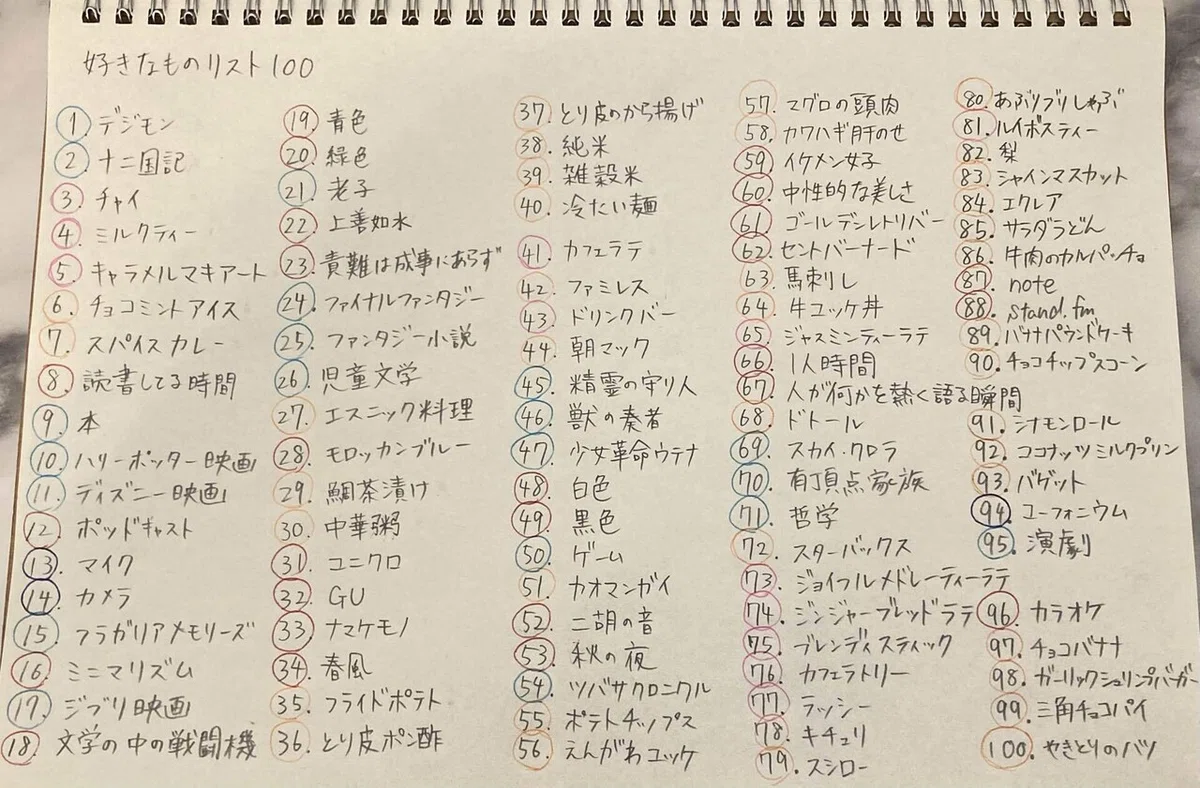 好きなものリスト100
1. デジモン
2. 十二国記
3. チャイ
4. ミルクティー
5. キャラメルマキアート
6. チョコミントアイス
7. スパイスカレー
8. 読書してる時間
9. 本
10. ハリーポッター映画
11. ディズニー映画
12. ポッドキャスト
13. マイク
14. カメラ
15. フラガリアメモリーズ
16. ミニマリズム
17. ジブリ映画
18. 文学の中の戦闘機
19. 青色
20. 緑色
21. 老子
22. 上善如水
23. 責難は成事にあらず
24. ファイナルファンタジー
25. ファンタジー小説
26. 児童文学
27. エスニック料理
28. モロッカンブルー
29. 鯛茶漬け
30. 中華粥
31. ユニクロ
32. GU
33. ナマケモノ
34. 春風
35. フライドポテト
36. とり皮ポン酢
37. とり皮のから揚げ
38. 純米
39. 雑穀米
40. 冷たい麺
41. カフェラテ
42. ファミレス
43. ドリンクバー
44. 朝マック
45. 精霊の守り人
46. 獣の奏者
47. 少女革命ウテナ
48. 白色
49. 黒色
50. ゲーム
51. カオマンガイ
52. 二胡の音
53. 秋の夜
54. ツバサクロニクル
55. ポテトチップス
56. えんがわユッケ
57. マグロの頭肉
58. カワハギ肝のせ
59. イケメン女子
60. 中性的な美しさ
61. ゴールデンレトリバー
62. セントバーナード
63. 馬刺し
64. 牛ユッケ丼
65. ジャスミンティーラテ
66. 1人時間
67. 人が何かを熱く語る瞬間
68. ドトール
69. スカイ・クロラ
70. 有頂点家族
71. 哲学
72. スターバックス
73. ジョイフルメドレーティーラテ
74. ジンジャーブレッドラテ
75. ブレンディスティック
76. カフェラトリー
77. ラッシー
78. キチュリ
79. スシロー
80. あぶりブリしゃぶ
81. ルイボスティー
82. 梨
83. シャインマスカット
84. エクレア
85. サラダうどん
86. 牛肉のカルパッチョ
87. note
88. stand.fm
89. バナナパウンドケーキ
90. チョコチップスコーン
91. シナモンロール
92. ココナッツミルクプリン
93. バゲット
94. ユーフォニウム
95. 演劇
96. カラオケ
97. チョコバナナ
98. ガーリックシュリンプバーガー
99. 三角チョコパイ
100. やきとりのハツ